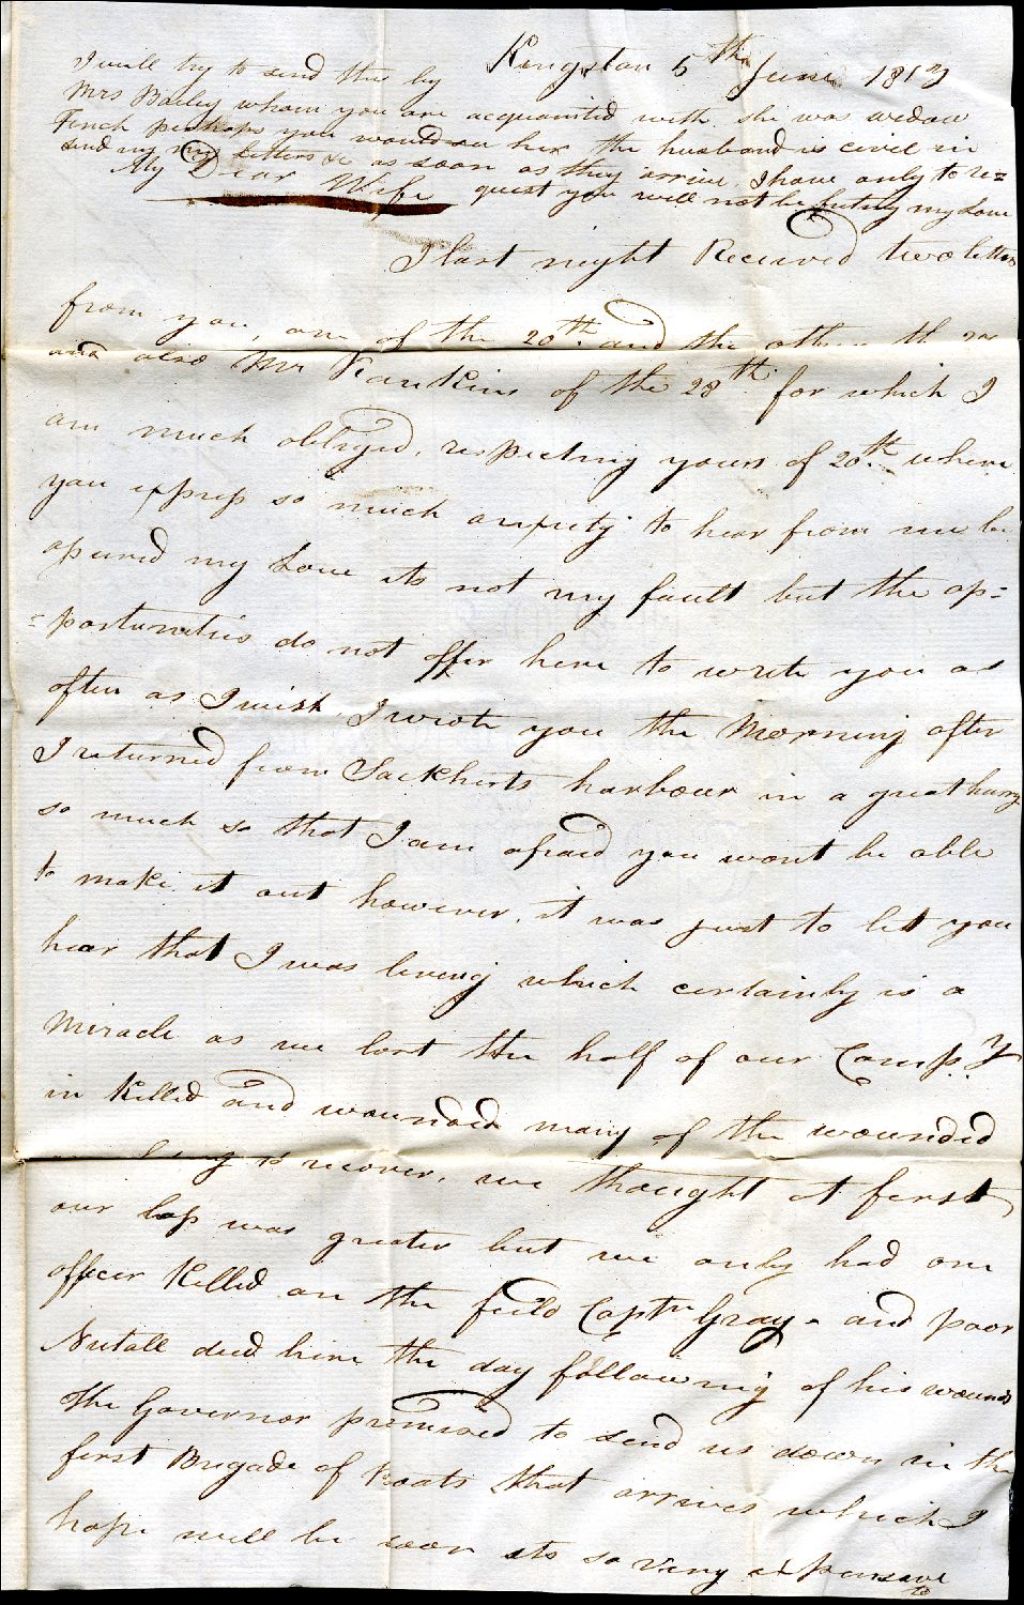 Kingston 5th June 1813
I will try to send this by
Mrs Bailey whom you are acquainted with she was widow
Finch perhaps you would see her the husband is civil in
send my letters &c as soon as they arrive. I have only to re=
quest you will not be my Love
My Dear Wife
I last night Received two letters
from you, one of the 20th and the other
and also Mr Rankins of the 28th for which I
am much obliged, respecting yours of 20th where
you express so much anxiety to hear from me be
assured my Love its not my fault but the op=
=portunities do not offer here to write you as
often as I wish, I wrote you the Morning after
I returned from Sackherts harbour in a great hurry
so much so that I am afraid you wont be able
to make it out however, it was just to let you
hear that I was living which certainly is a
Miracle as we lost the half of our Compy
in Killed and wounded many of the wounded
to recover, we thought at first
our loss was greater but we only had one
officer Killed on the field Captn Gray. and poor
Nutall died here the day following of his wounds
The Governor promised to send us down in the
first Brigade of Boats that arrives which I
hope will be soon its so very expensive
to